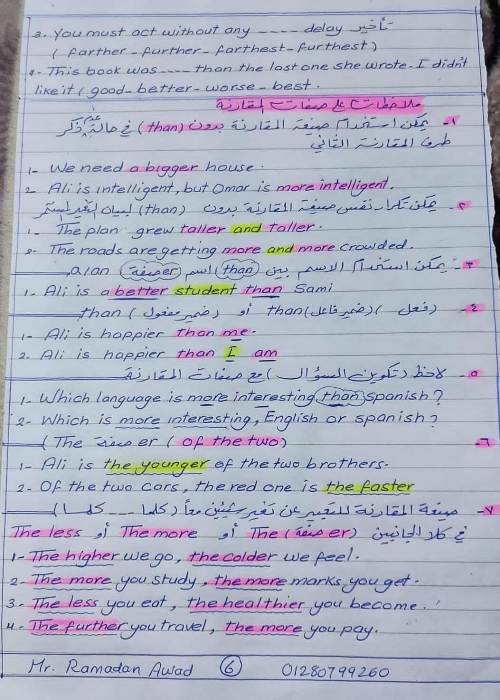 3. You must act without any ---- delay تأخير
( farther - further - farthest - furthest )
4. This book was ---- than the last one she wrote. I didn't
like it (good - better - worse - best.
ملاحظات على صفات المقارنة
١- يمكن استخدام صيغة المقارنة بدون (than) في حالة عدم ذكر
طرف المقارنة الثاني
1- We need a bigger house.
2 Ali is intelligent, but Omar is more intelligent.
٢- يمكن تكرار نفس صيغة المقارنة بدون (than) لبيان التغير المستمر
1- The plan grew taller and taller.
2. The roads are getting more and more crowded.
٣- يمكن استخدام الاسم بين than اسم صفة er a/an
1. Ali is a better student than Sami
٤- (فعل) (ضمير فاعل) than أو (ضمير مفعول) than
1- Ali is happier than me.
2. Ali is happier than I am
٥- لاحظ (تكوين السؤال) مع صفات المقارنة
1- Which language is more interesting than spanish?
2- Which is more interesting, English or spanish?
٦- (The صفة er ( of the two)
1- Ali is the younger of the two brothers.
2- Of the two cars, the red one is the faster
٧- صيغة المقارنة للتعبير عن تغير شيئين معاً (كلما ... كلما)
في كلا الجانبين The (صفة er) أو The more أو The less
1- The higher we go, the colder we feel.
2- The more you study, the more marks you get.
3- The less you eat, the healthier you become.
4- The further you travel, the more you pay.
Mr. Ramadan Awad 6 01280799260